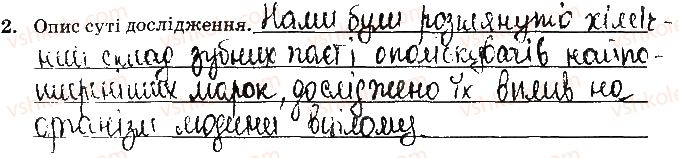 2. Опис суті дослідження. Нами були розглянуто хіміч-
ний склад зубних паст і ополіскувачів найпо-
ширеніших марок, досліджено їх вплив на
організм людини вцілому.